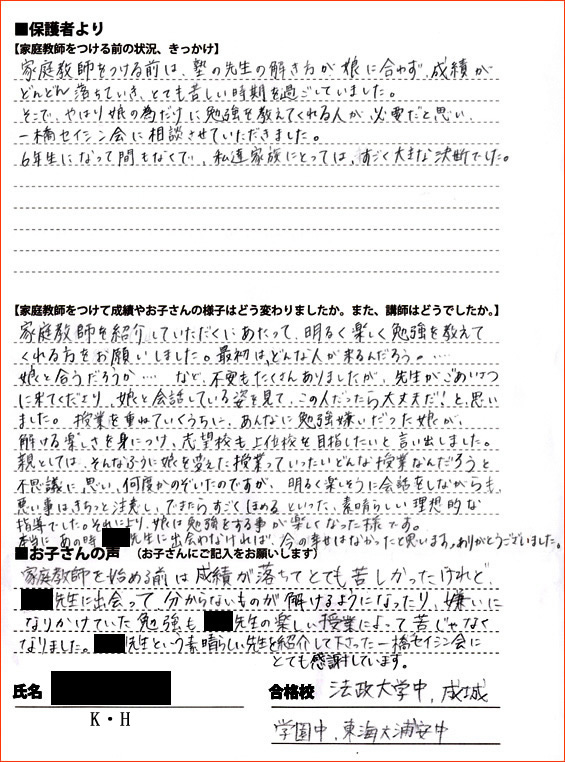 ■保護者より
【家庭教師をつける前の状況、きっかけ】
家庭教師をつける前は、塾の先生の解き方が娘に合わず、成績が
どんどん落ちていき、とても苦しい時期を過ごしていました。
そこで、やはり娘の為だけに勉強を教えてくれる人が必要だと思い、
一橋セイシン会に相談させていただきました。
6年生になって間もなくで、私達家族にとっては、すごく大きな決断でした。
【家庭教師をつけて成績やお子さんの様子はどう変わりましたか。また、講師はどうでしたか。】
家庭教師を紹介していただくにあたって、明るく楽しく勉強を教えて
くれる方をお願いしました。最初は、どんな人が来るんだろう。…
娘と合うだろうか…など、不安もたくさんありましたが、先生がごあいさつ
に来てくださり、娘と会話している姿を見て、この人だったら大丈夫だ!と思い
ました。授業を重ねていくうちに、あんなに勉強嫌いだった娘が、
解ける楽しさを身につけ、志望校も上位校を目指したいと言い出しました。
親としては、そんなふうに娘を変えた授業っていったいどんな授業なんだろうと
不思議に思い、何度かのぞいたのですが、明るく楽しそうに会話をしながらも、
悪い事はきちっと注意し、できたらすごくほめるといった、素晴らしい理想的な
指導でした。それにより、娘は勉強をする事が楽しくなった様です。
本当にあの時先生に出会わなければ、今の幸せはなかったと思います。ありがとうございました。
■お子さんの声 (お子さんにご記入をお願いします)
家庭教師を始める前は成績が落ちてとても苦しかったけれど
先生に出会って分からないものが解けるようになったり、嫌いに
なりかけていた勉強も先生の楽しい授業によって苦じゃなく
なりました。先生という素晴らしい先生を紹介して下さった一橋セイシン会に
とても感謝しています。
氏名
K・H
合格校 法政大学中、成城
学園中、東海大浦安中